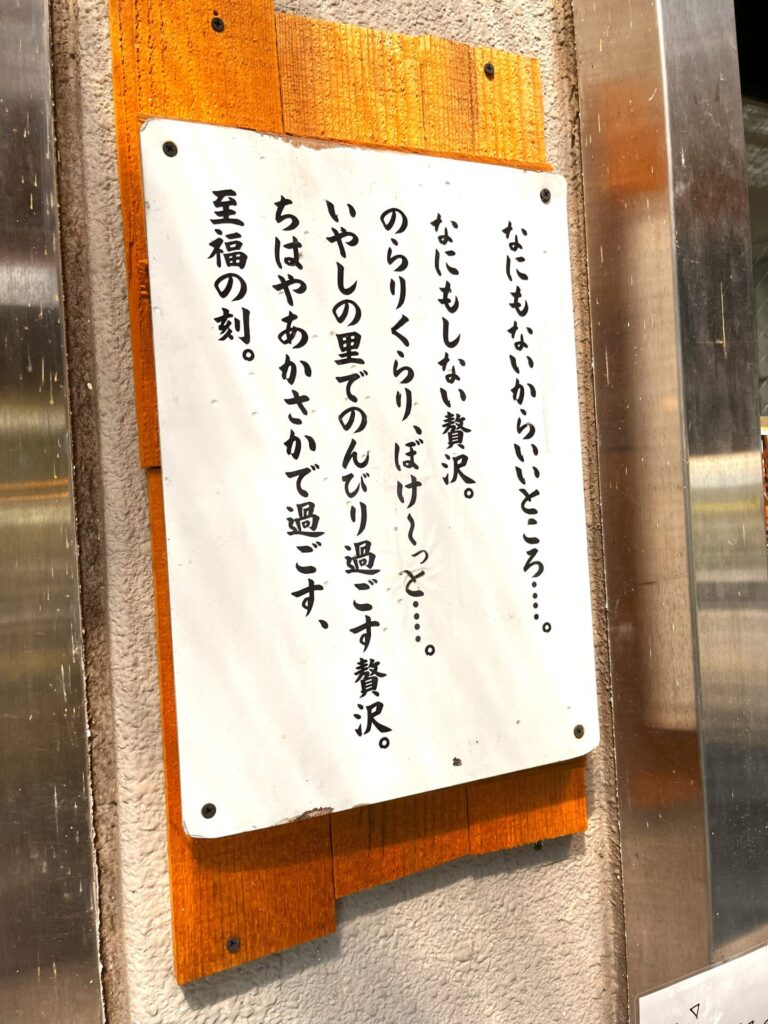 なにもないからいいところ…。
なにもしない贅沢。
のらりくらり、ぼけ～っと…。
いやしの里でのんびり過ごす贅沢。
ちはやあかさかで過ごす、
至福の刻。